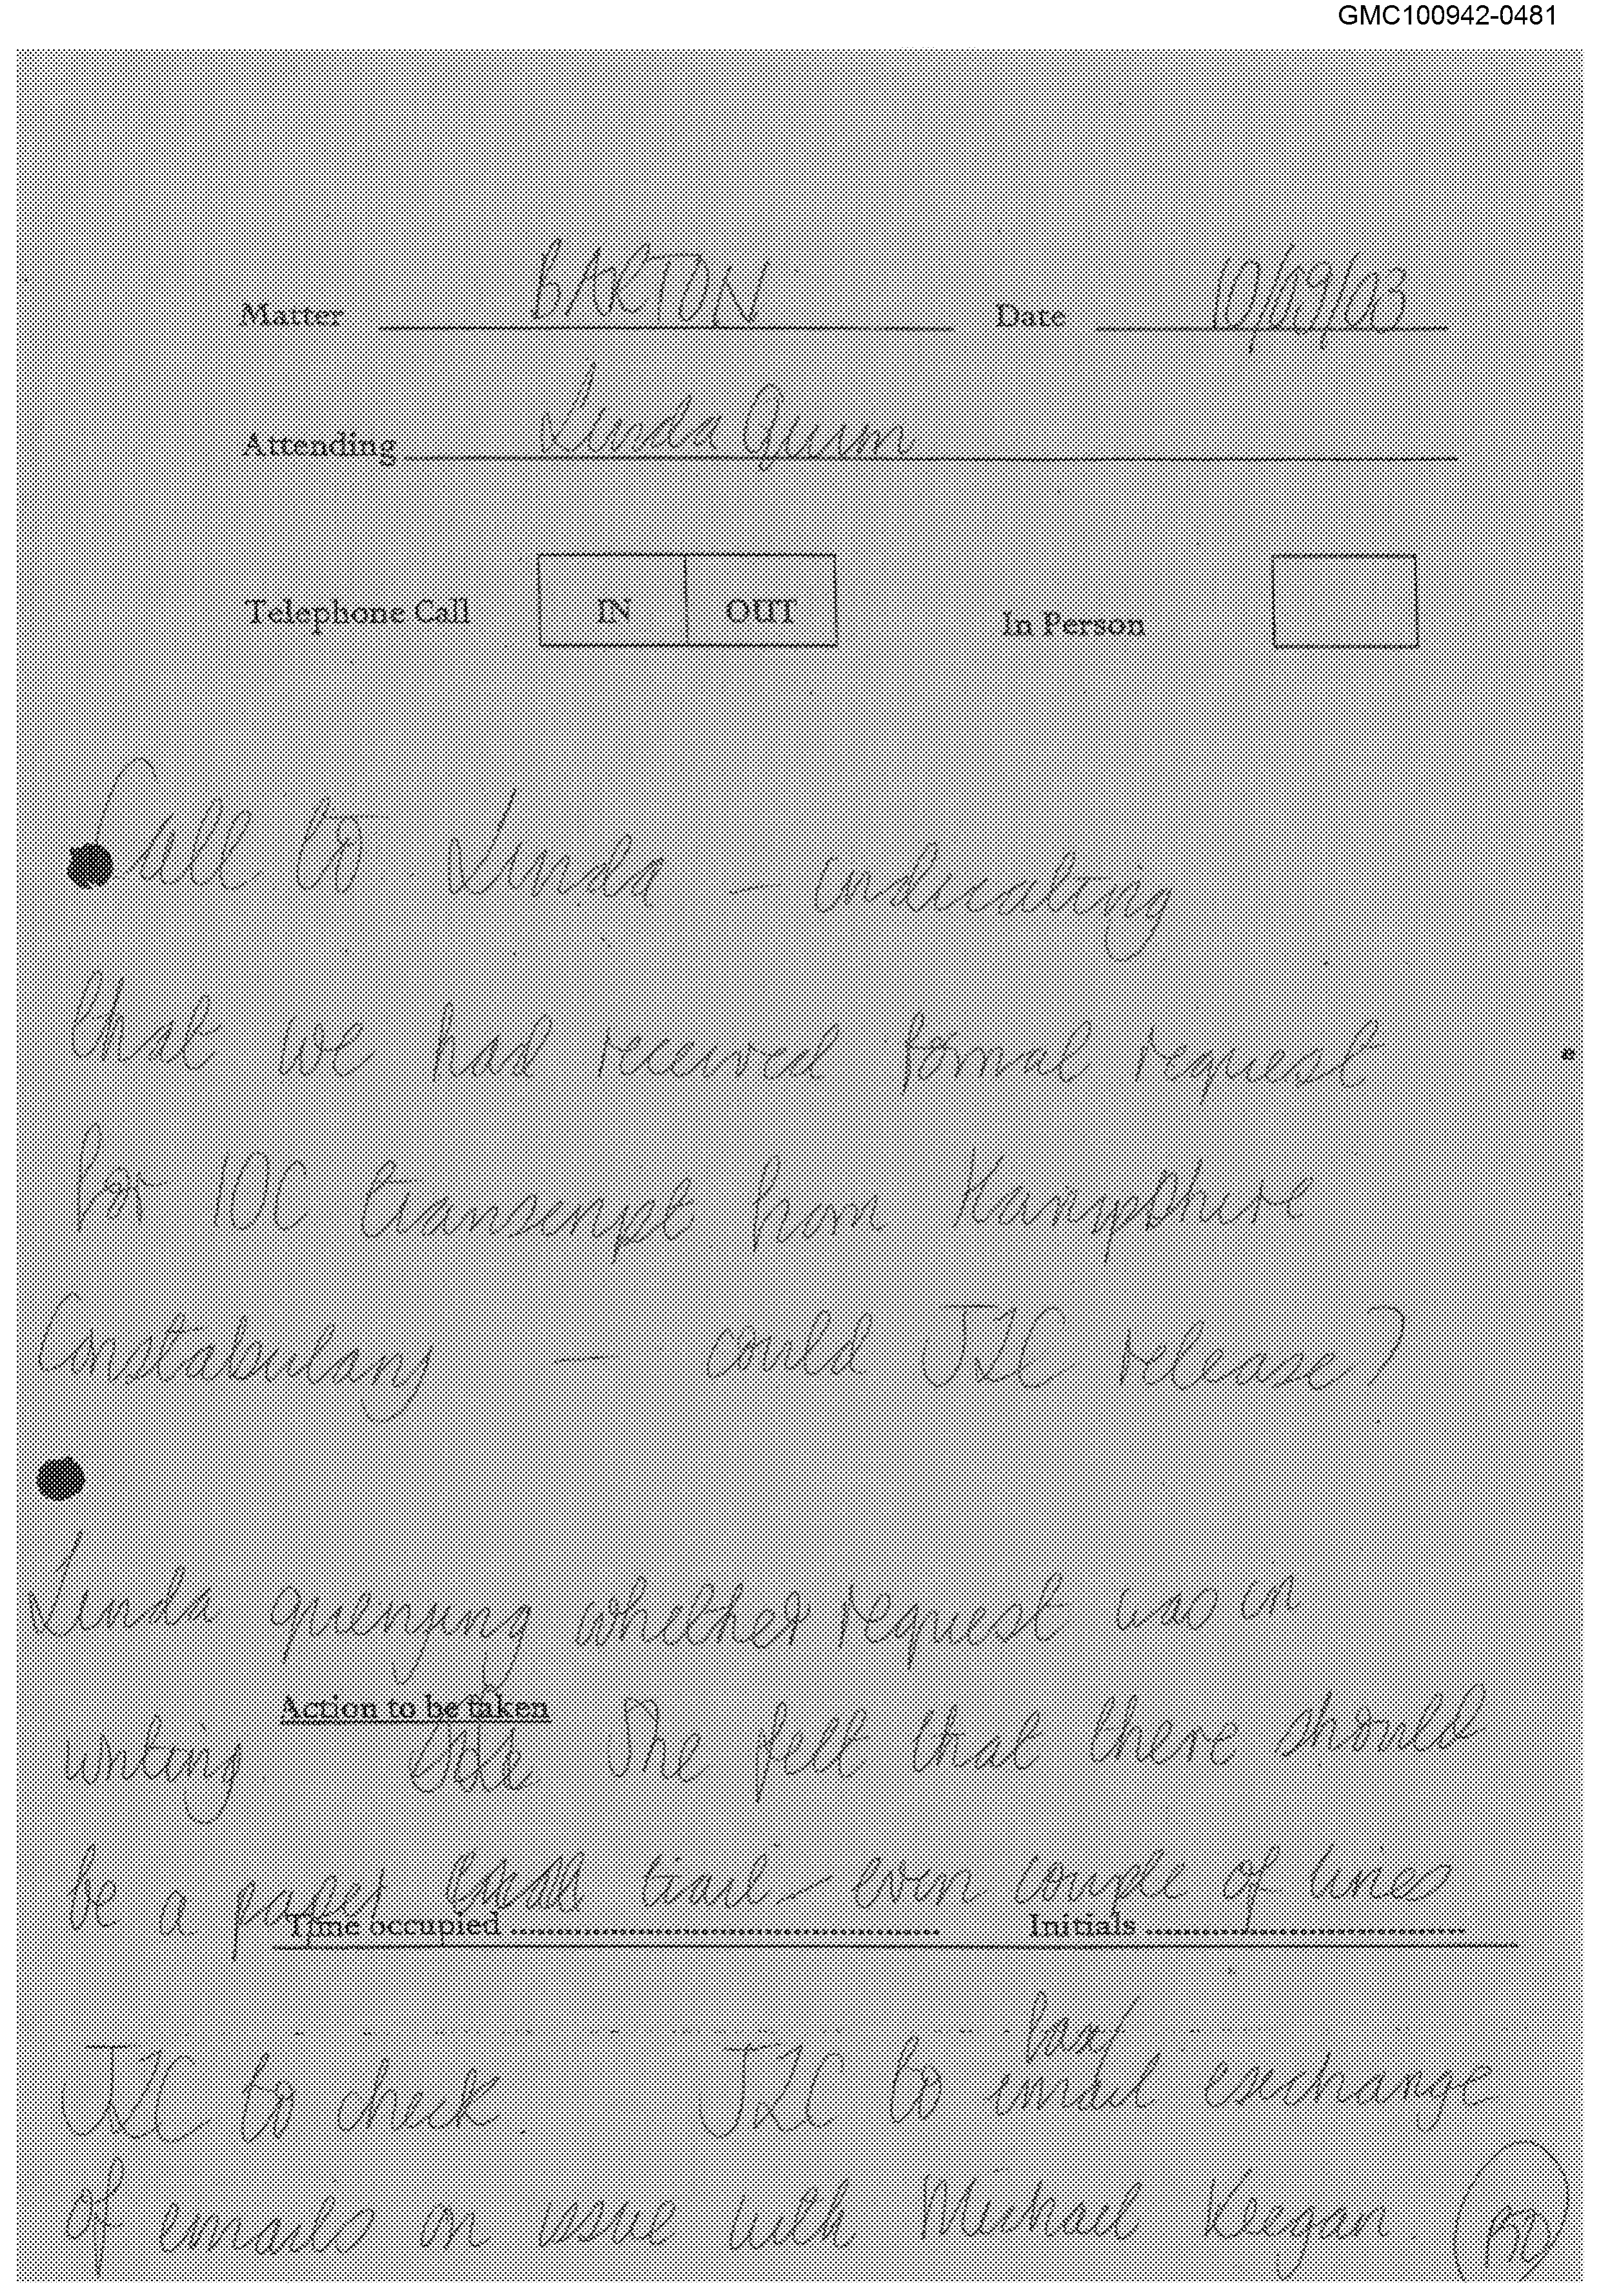 GMC100942-0481
Matter BARTON Date 10/09/03
Attending Linda Quinn
Telephone Call IN OUT In Person
Call to Linda – indicating
that we had received formal request
for IOC transcript from Hampshire
Constabulary – could JZC release?
Linda querying whether request was in
Action to be taken
writing She felt that there should
be a paper trail – even couple of lines
Time occupied Initials
JZC to check. JZC to email exchange
of emails on issue with Michael Keegan